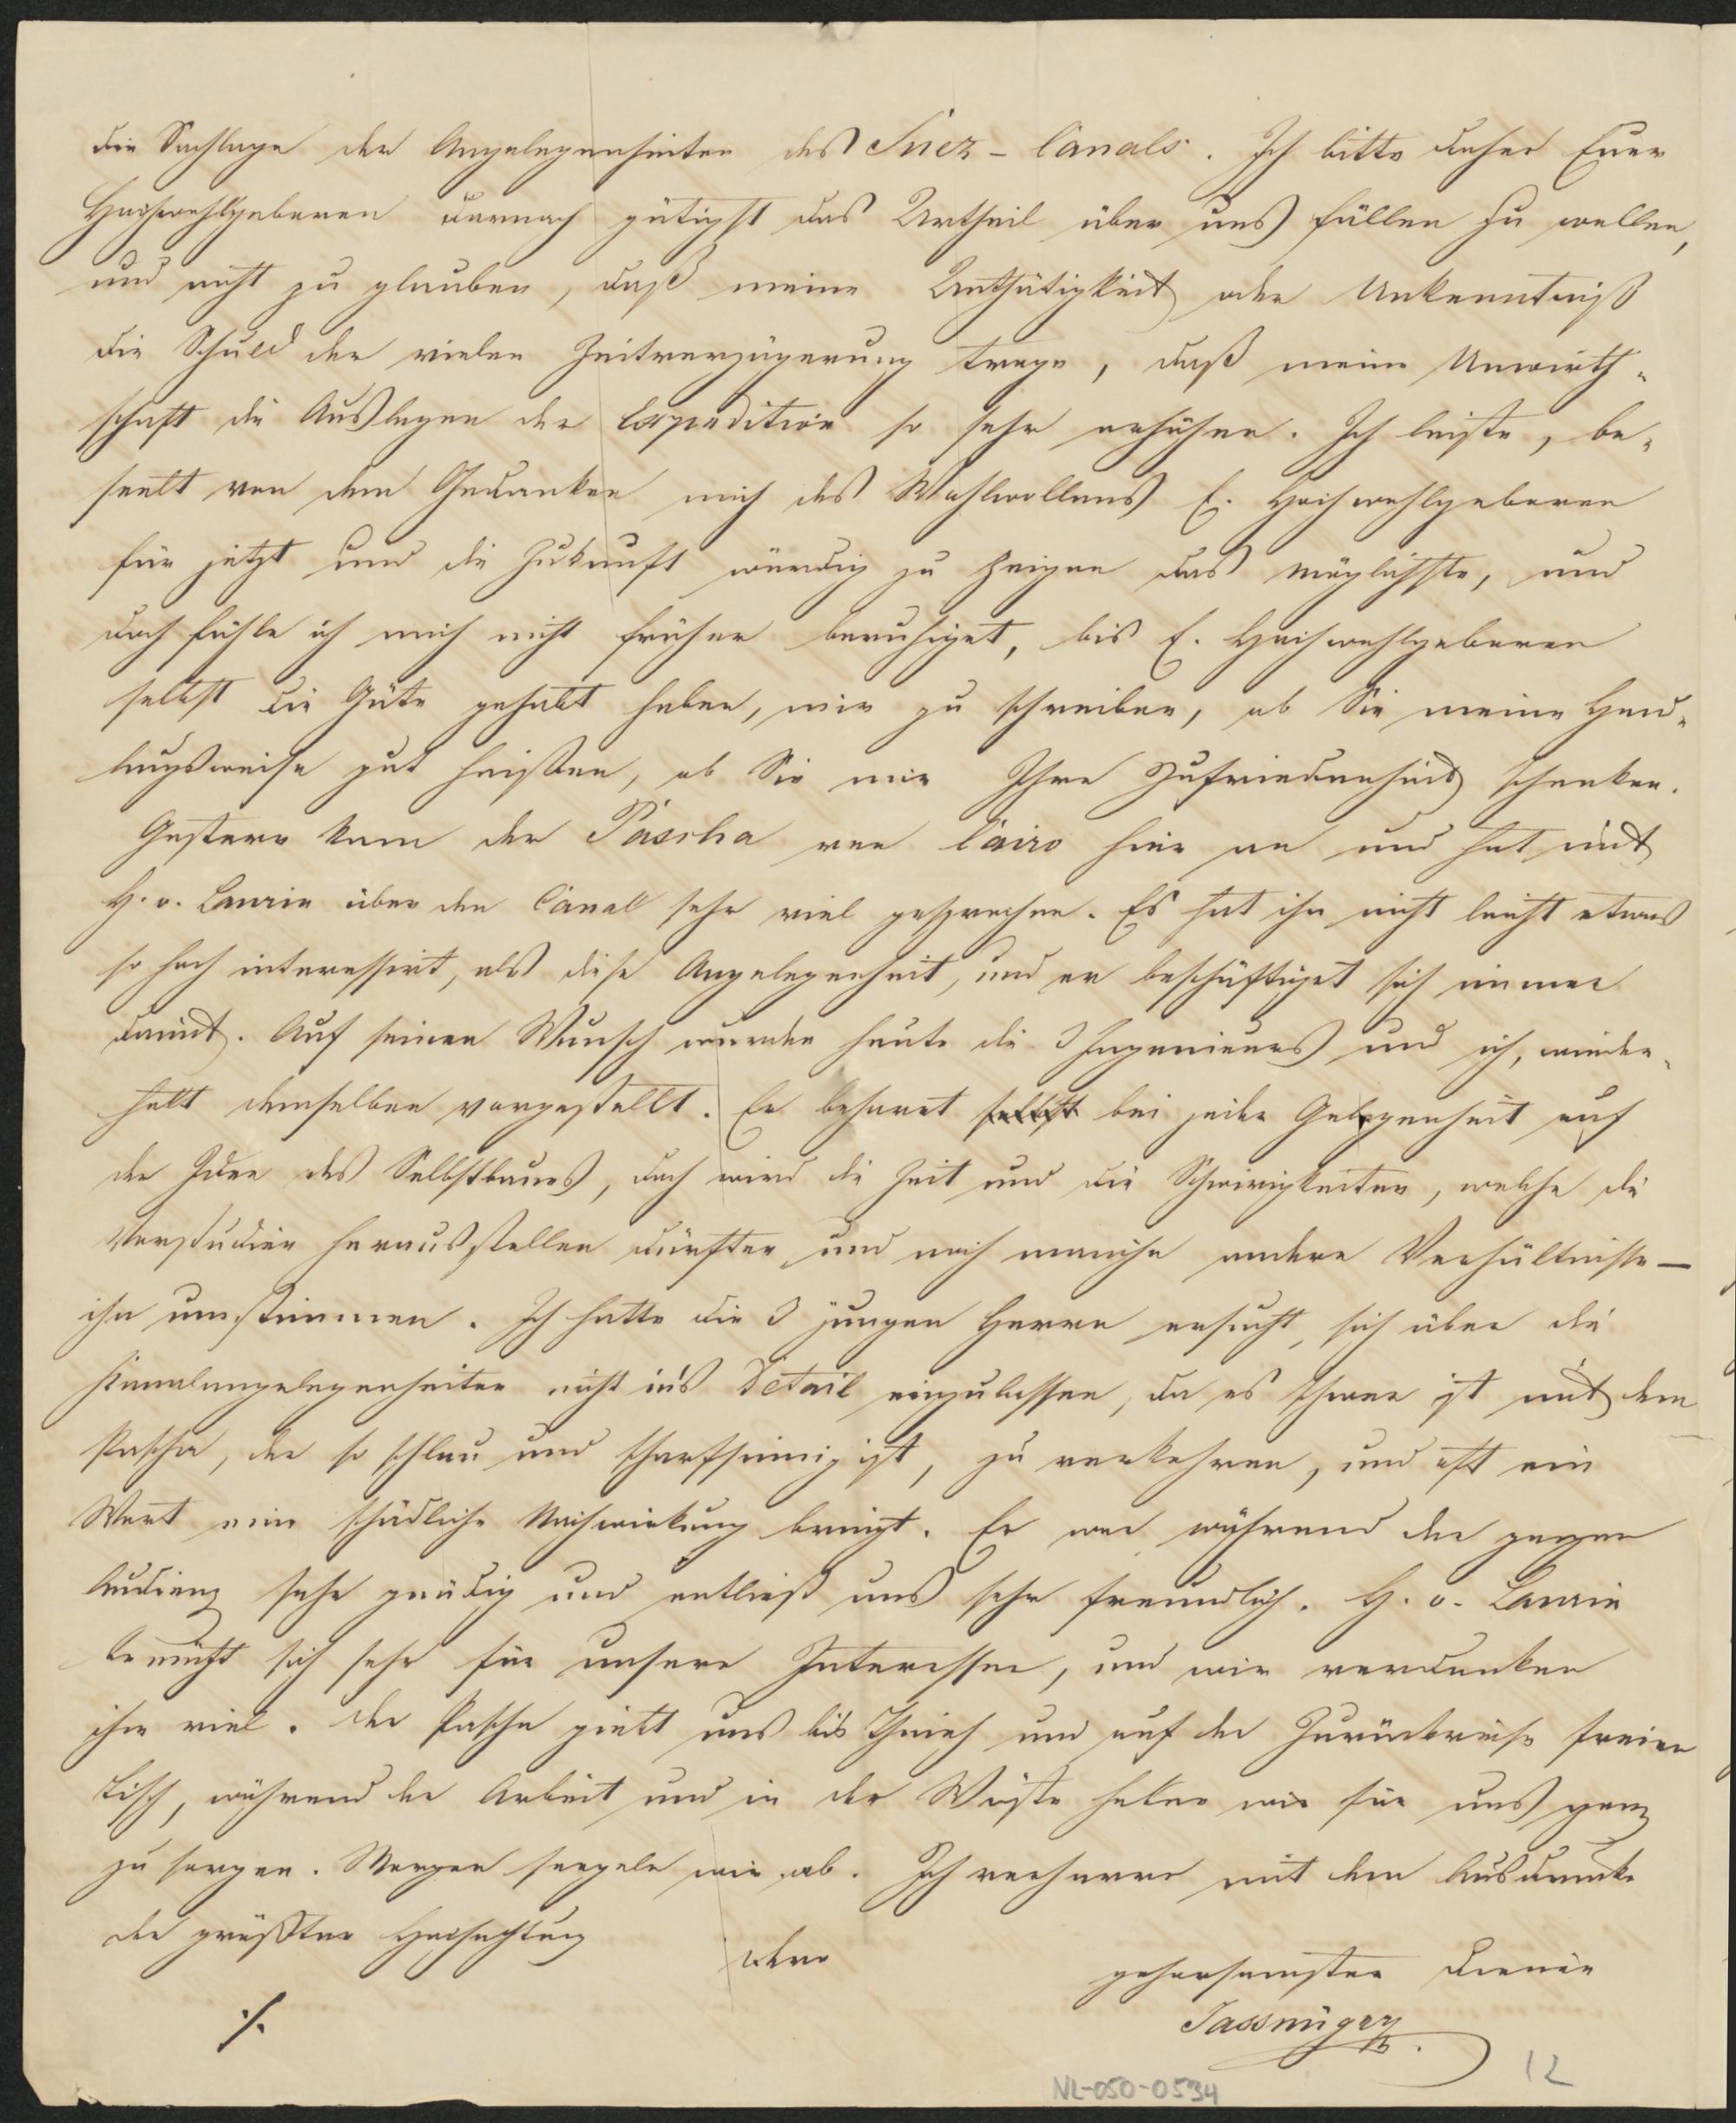 die Sachlage der Angelegenheiten des Suez-Canals. Ich bitte daher Euer
Hochwohlgeboren darnach gütigst das Urtheil über uns fällen zu wollen,
und nicht zu glauben, daß meine Unthätigkeit oder Unkenntniß
die Schuld der vielen Zeitverzögerung trage, daß meine Unwirth-
schaft die Auslagen der Expedition so sehr erhöhen. Ich leiste, be-
seelt von dem Gedanken mich des Wohlwollens E. Hochwohlgeboren
für jetzt und die Zukunft würdig zu zeigen das möglichste, und
doch fühle ich mich nicht früher beruhiget, bis E. Hochwohlgeboren
selbst die Güte gehabt haben, mir zu schreiben, ob Sie meine Hand-
lungsweise gut heißen, ob Sie mir Ihre Zufriedenheit schenken.
Gestern kam der Pascha von Cairo hier an und hat mit
H. v. Laurin über den Canal sehr viel gesprochen. Es hat ihn nicht leicht etwas
so hoch interessirt, als diese Angelegenheit, und er beschäftiget sich immer
damit. Auf seinen Wunsch wurden heute die 3 Ingenieurs und ich, wieder-
holt demselben vorgestellt. Er beharret selbst bei jeder Gelegenheit auf
der Idee des Selbstbaues, doch wird die Zeit und die Schwirigkeiten, welche die
Vorstudien herausstellen dürften und noch manche andere Verhältnisse —
ihn umstimmen. Ich hatte die 3 jungen Herrn ersucht, sich über die
Kanalangelegenheiten nicht in's Detail einzulassen, da es schwer ist mit dem
Pascha, der so schlau und scharfsinnig ist, zu verkehren, und oft ein
Wort eine schädliche Nachwirkung bringt. Er war während der ganzen
Audienz sehr gnädig und entließ uns sehr freundlich. H. v. Laurin
bemüht sich sehr für unsere Interessen, und wir verdanken
ihm viel. Der Pascha giebt uns bis und auf der Zurückreise freien
Tisch, während der Arbeit und in der Wüste haben wir für uns ganz
zu sorgen. Morgen seegeln wir ab. Ich verharre mit dem Ausdrucke
der größten Hochachtung
dero
gehorsamster Diener
./.
NL-050-0534
12